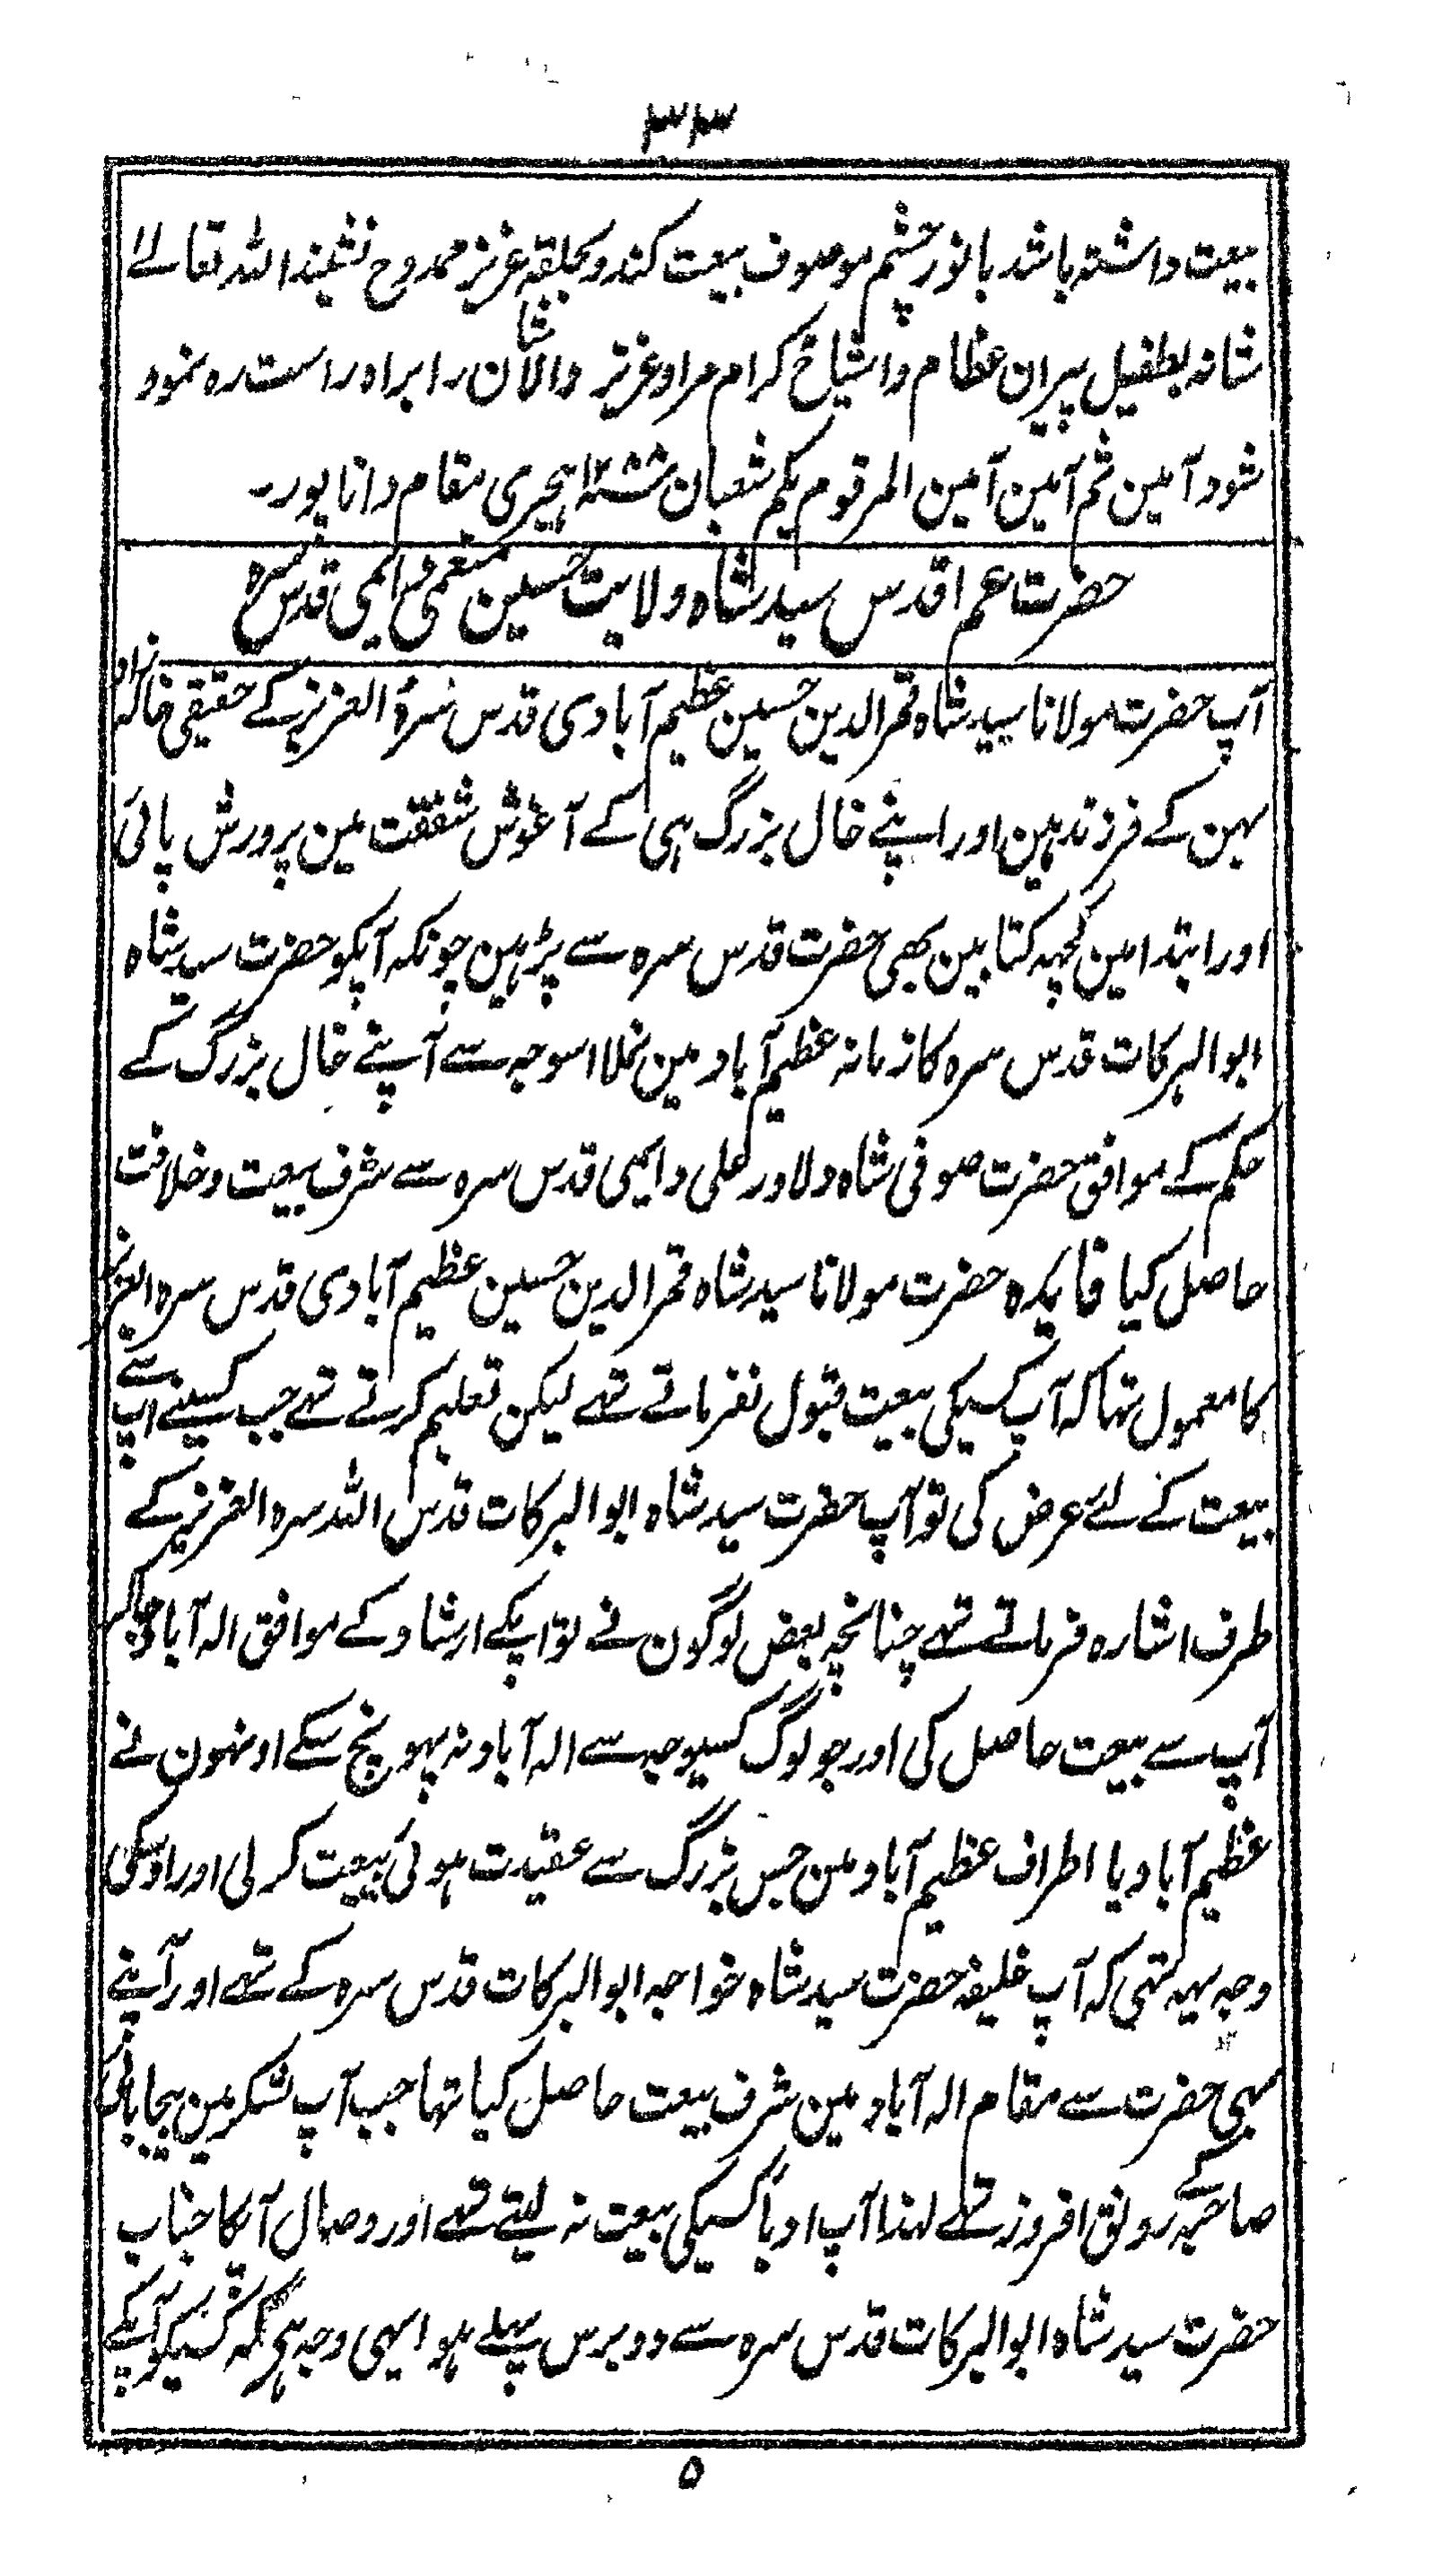 ۳۳
بیعت داشتہ باشد با نورچشم موصوف بیعت کند و بحلقہ عزیز ممدوح نشیند اللہ تعالےٰ
شانہ بطفیل پیران عظام و اشیاخ کرام مراد عزیز والاشان را براہ راست رہ نمود
شود آمین ثم آمین آمین المرقوم یکم شعبان ہجری مقام داناپور۔
حضرت عم اقدس سید شاہ ولایت حسین منعمی دایمی قدس سرہ
آپ حضرت مولانا سید شاہ قمر الدین حسین عظیم آبادی قدس سرہُ العزیز کے حقیقی خالہ زاد
بہن کے فرزند ہین اور اپنے خال بزرگ ہی کے آغوش شفقت مین پرورش پائی
اور ابتدا مین کچہہ کتابین بھی حضرت قدس سرہ سے پڑہین چونکہ آپکو حضرت سید شاہ
ابوالبرکات قدس سرہ کا زمانہ عظیم آباد مین نملا اسوجہ سے آپنے خال بزرگ کے
حکم کے موافق حضرت صوفی شاہ دلاور علی دایمی قدس سرہ سے شرف بیعت و خلافت
حاصل کیا فایدہ حضرت مولانا سید شاہ قمر الدین حسین عظیم آبادی قدس سرہ العزیز
کا معمول تہا کہ آپ کسیکی بیعت قبول نفرماتے تہے لیکن تعلیم کرتے تہے جب کسینے آپ سے
بیعت کے لئے عرض کی تو آپ حضرت سید شاہ ابوالبرکات قدس اللہ سرہ العزیز کے
طرف اشارہ فرماتے تہے چنانچہ بعض لوگون نے تو اپکے ارشاد کے موافق الہ آباد جاکر
آپ سے بیعت حاصل کی اور جو لوگ کسیوجہ سے الہ آباد نہ پہونچ سکے اونہون نے
عظیم آباد یا اطراف عظیم آباد مین جس بزرگ سے عقیدت ہوئی بیعت کر لی اور اوسکی
وجہ یہہ تہی کہ آپ خلیفہ حضرت سید شاہ خواجہ ابوالبرکات قدس سرہ کے تہے اور آپنے
بہی حضرت سے مقام الہ آباد مین شرف بیعت حاصل کیا تہا جب آپ لشکر مین بیجا بائی
صاحبہ کے رونق افروز تہے لہذا آپ ادباً کسیکی بیعت نہ لیتے تہے اور وصال آپکا جناب
حضرت سید شاہ ابوالبرکات قدس سرہ سے دو برس پہلے ہوا یہی وجہ ہی کہ کسیکو آپکے
۵